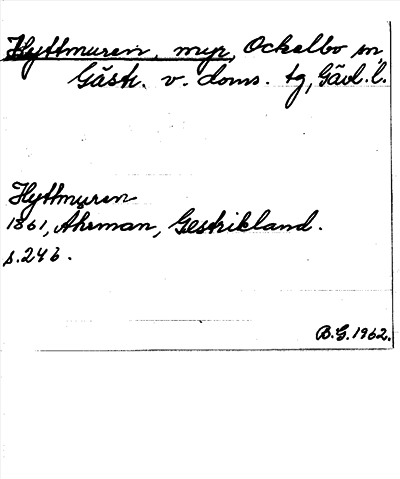 Hyttmuren, myr, Ockelbo sn,
Gästr. v. doms. tg, Gävl. l.
Hyttmuren
1861, Ahrman, Gestrikland.
s. 246.
B.G. 1962.